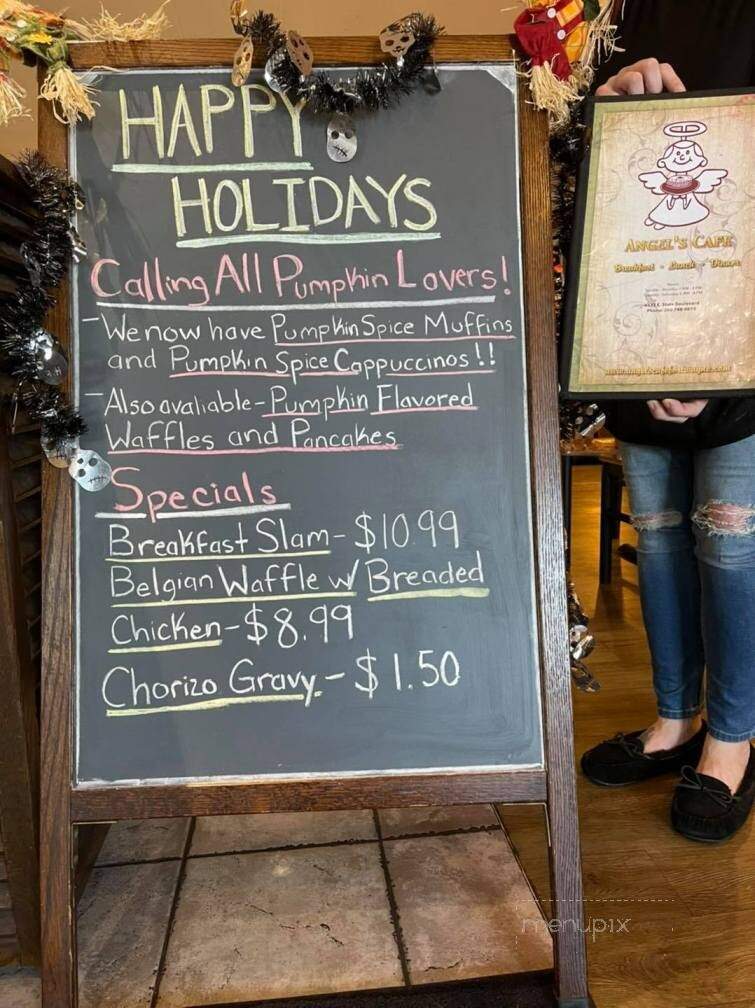 HAPPY
HOLIDAYS
Calling All Pumpkin Lovers!
- We now have Pumpkin Spice Muffins
and Pumpkin Spice Cappuccinos!!
- Also avaliable - Pumpkin Flavored
Waffles and Pancakes
Specials
Breakfast Slam - $10 99
Belgian Waffle w/ Breaded
Chicken - $8.99
Chorizo Gravy. - $1.50
ANGEL'S CAFE
Breakfast - Lunch - Dinner
menupix